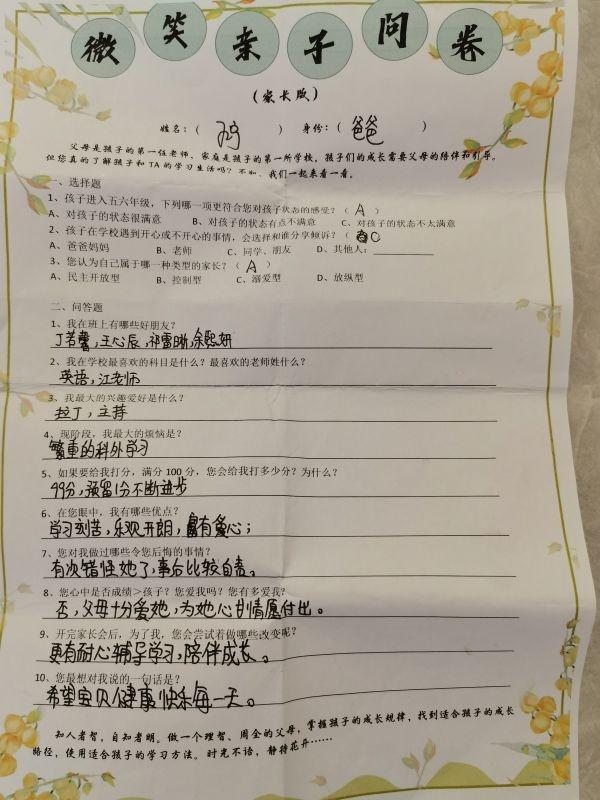 微笑亲子问卷
（家长版）
姓名：（ ） 身份：（ 爸爸 ）
父母是孩子的第一任老师，家庭是孩子的第一所学校，孩子们的成长需要父母的陪伴和引导。
但您真的了解孩子和TA的学习生活吗？不如，我们一起来看一看。
一、选择题
1、孩子进入五六年级，下列哪一项更符合您对孩子状态的感受？（ A ）
A、对孩子的状态很满意 B、对孩子的状态有点不满意 C、对孩子的状态不太满意
2、孩子在学校遇到开心或不开心的事情，会选择和谁分享倾诉？（ C ）
A、爸爸妈妈 B、老师 C、同学、朋友 D、其他人：
3、您认为自己属于哪一种类型的家长？（ A ）
A、民主开放型 B、控制型 C、溺爱型 D、放纵型
二、问答题
1、我在班上有哪些好朋友？
丁若馨，王心辰，祁雷晰，余熙妍
2、我在学校最喜欢的科目是什么？最喜欢的老师姓什么？
英语，江老师
3、我最大的兴趣爱好是什么？
拉丁，主持
4、现阶段，我最大的烦恼是？
繁重的科外学习
5、如果要给我打分，满分100分，您会给我打多少分？为什么？
99分，预留1分不断进步
6、在您眼中，我有哪些优点？
学习刻苦，乐观开朗，富有爱心；
7、您对我做过哪些令您后悔的事情？
有次错怪她了，事后比较自责。
8、您心中是否成绩＞孩子？您爱我吗？您有多爱我？
否，父母十分爱她，为她心甘情愿付出。
9、开完家长会后，为了我，您会尝试着做哪些改变呢？
更有耐心辅导学习，陪伴成长。
10、您最想对我说的一句话是？
希望宝贝健康快乐每一天。
知人者智，自知者明。做一个理智、周全的父母，掌握孩子的成长规律，找到适合孩子的成长
路径，使用适合孩子的学习方法。时光不语，静待花开……